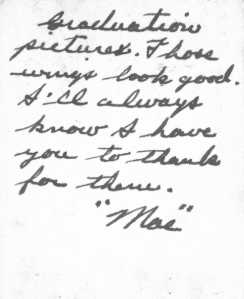 Graduation
pictures. Those
wings look good.
I'll always
know I have
you to thank
for them.
"Mac"